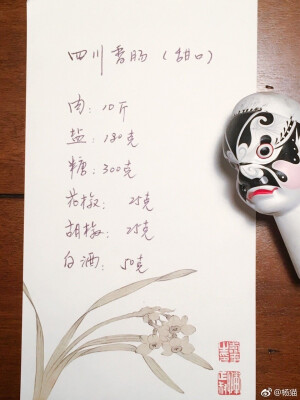 四川香肠（甜口）
肉：10斤
盐：130克
糖：300克
花椒：25克
胡椒：25克
白酒：50克
@杨猫